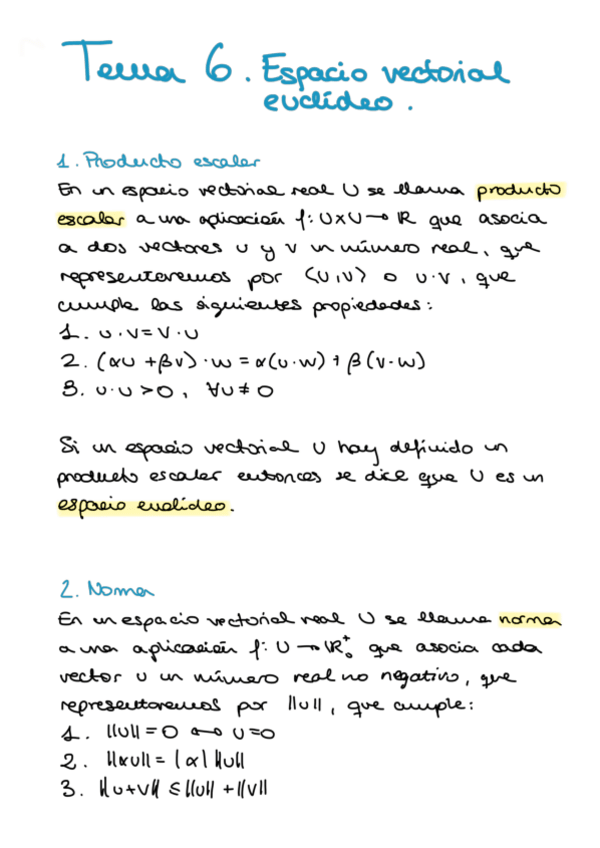 Tema 6. Espacio vectorial
euclídeo.
1. Producto escalar
En un espacio vectorial real U se llama producto
escalar a una aplicación f: U×U→ℝ que asocia
a dos vectores u y v un número real, que
representaremos por ⟨u,v⟩ o u·v, que
cumple las siguientes propiedades:
1. u·v=v·u
2. (αu +βv)·w = α(u·w) + β(v·w)
3. u·u>0, ∀u≠0
Si un espacio vectorial U hay definido un
producto escalar entonces se dice que U es un
espacio euclídeo.
2. Norma
En un espacio vectorial real U se llama norma
a una aplicación f: U→ℝ₀⁺ que asocia cada
vector u un número real no negativo, que
representaremos por ||u||, que cumple:
1. ||u||=0 ↔ u=0
2. ||αu||=|α| ||u||
3. ||u+v|| ≤ ||u||+||v||